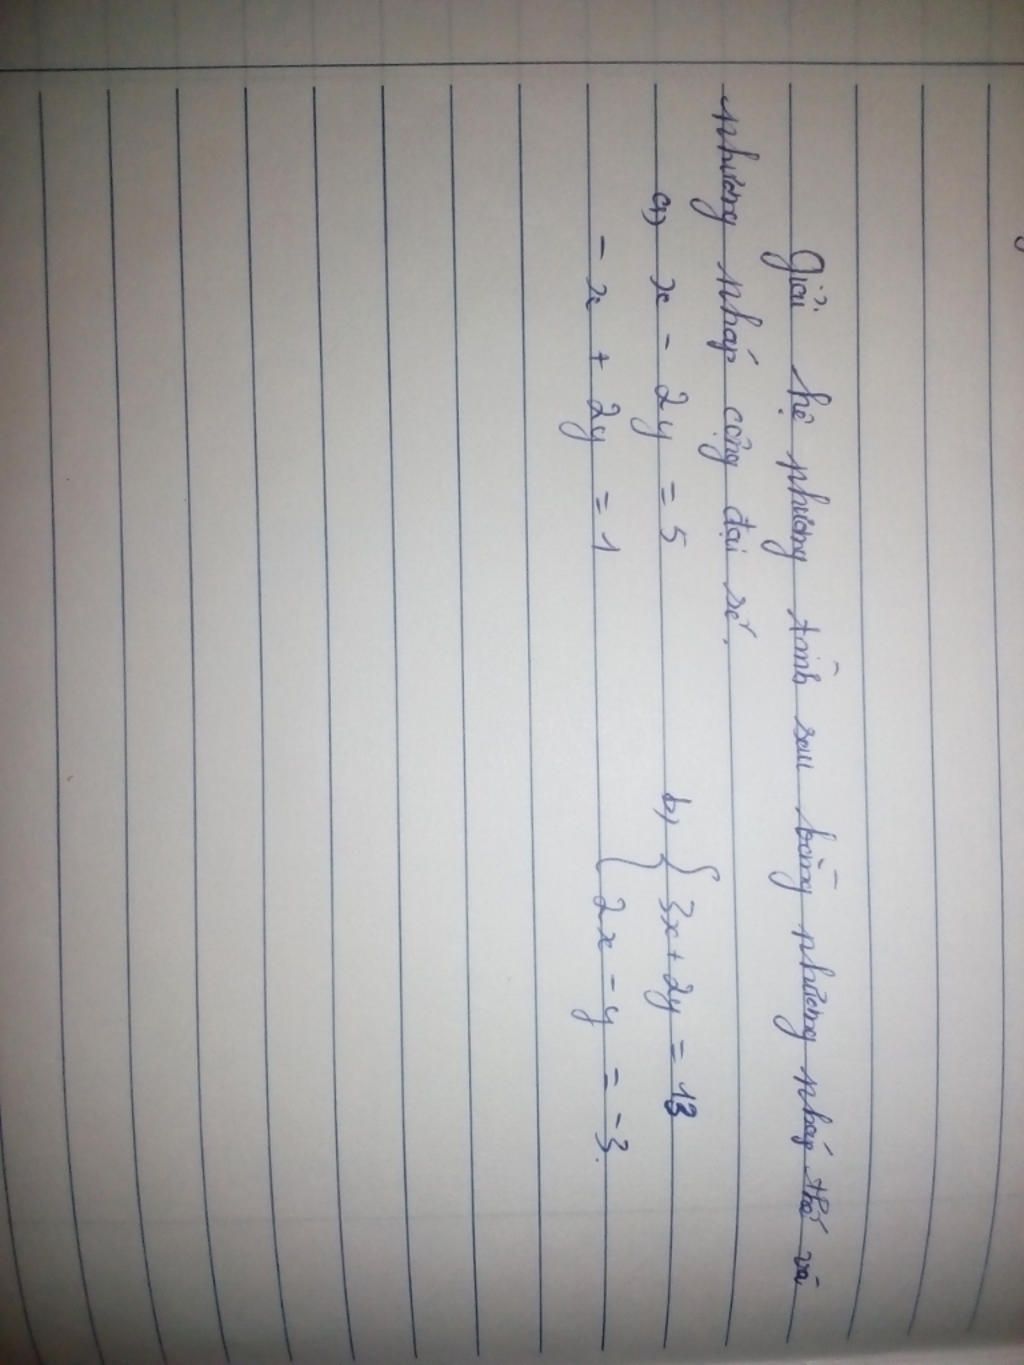 Giải hệ phương trình sau bằng phương pháp thế và
phương pháp cộng đại số.
a) x - 2y = 5 b) { 3x + 2y = 13
- x + 2y = 1 { 2x - y = -3.